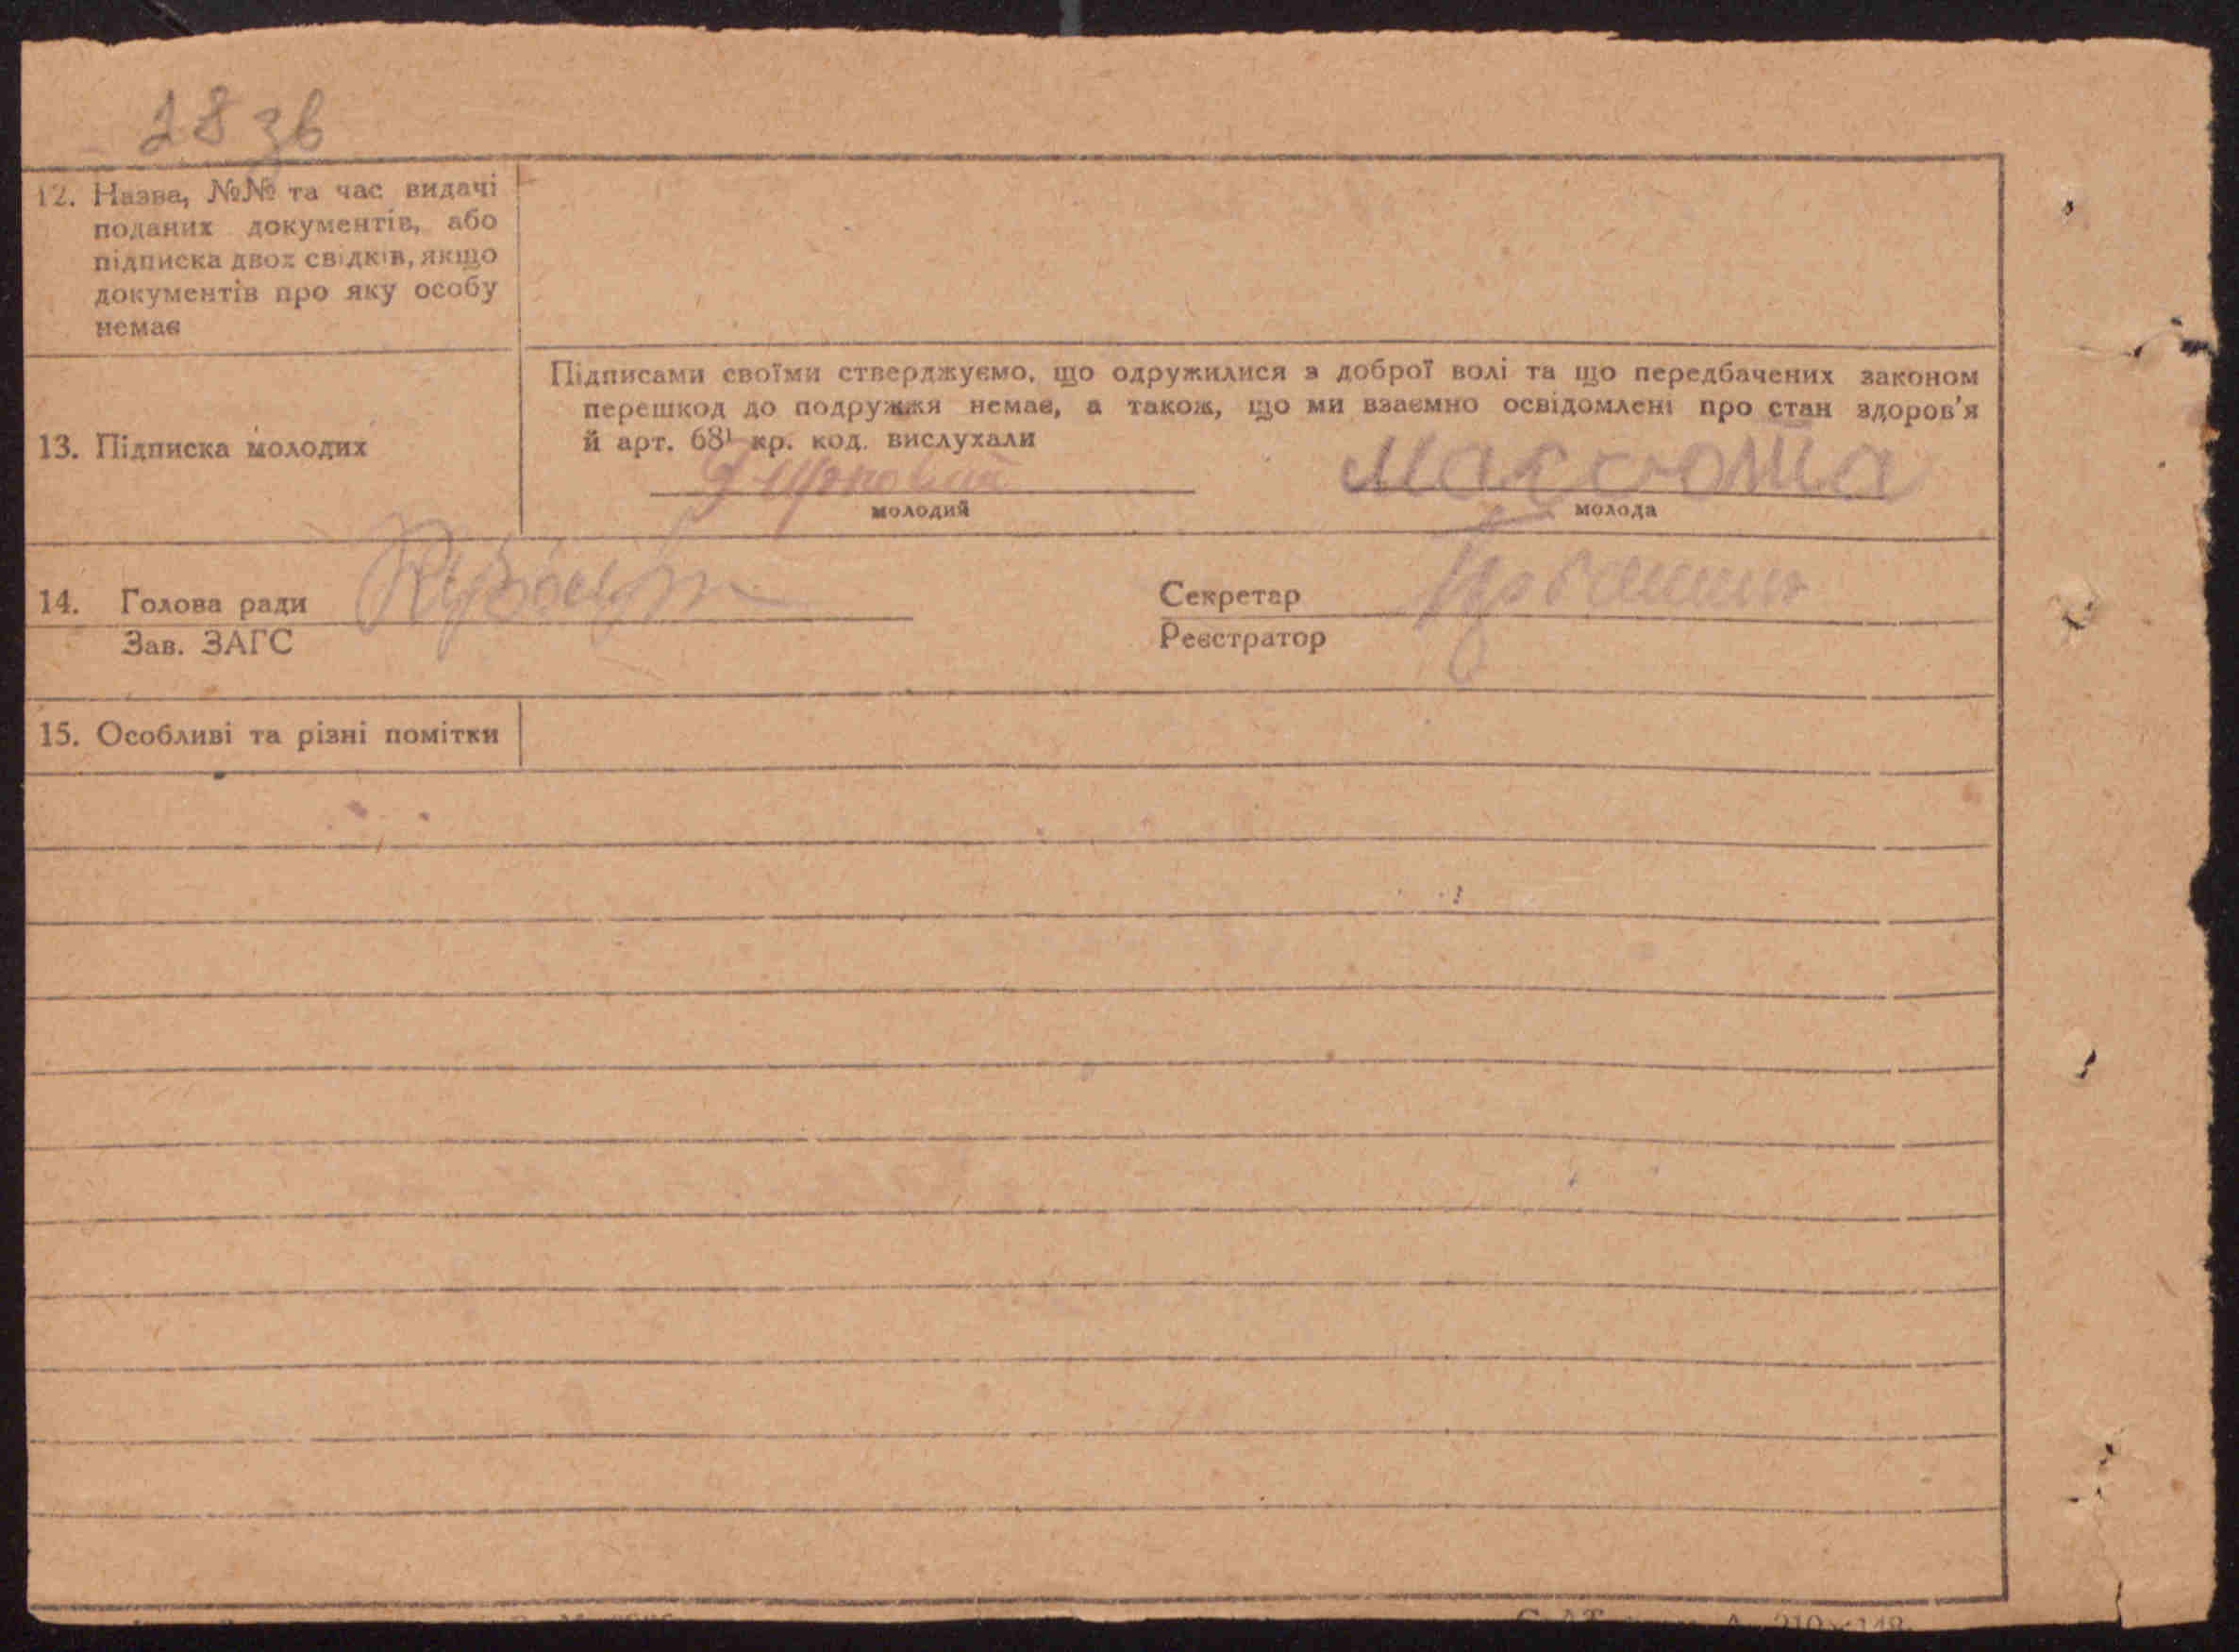 28 зв
12. Назва, №№ та час видачі
поданих документів, або
підписка двох свідків, якщо
документів про яку особу
немає
Підписами своїми стверджуємо, що одружилися з доброї волі та що передбачених законом
перешкод до подружжя немає, а також, що ми взаємно освідомлені про стан здоров'я
13. Підписка молодих
й арт. 68¹ кр. код. вислухали
молодий
молода
14. Голова ради
Секретар
Зав. ЗАГС
Реєстратор
15. Особливі та різні помітки
210×148.